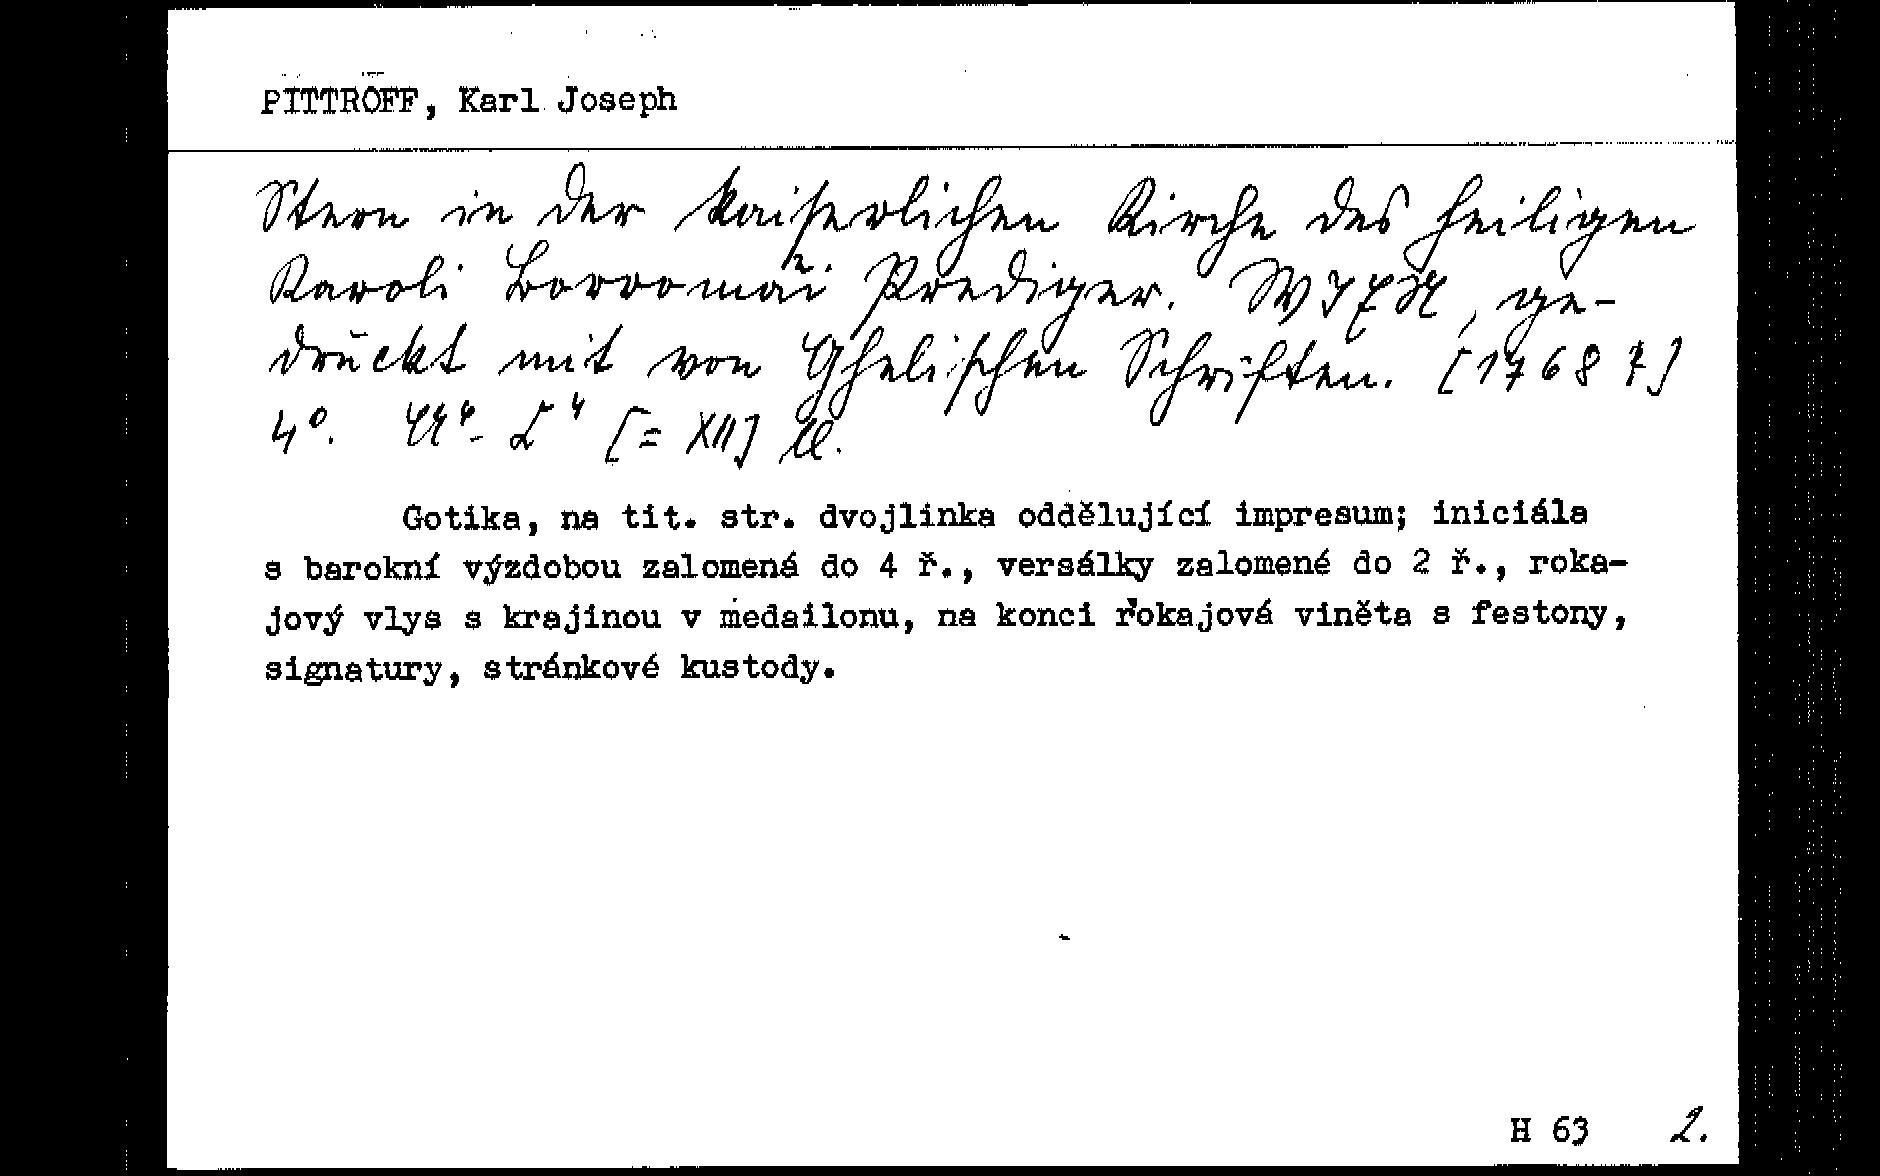 PITTROFF, Karl Joseph
Stern in der kaiserlichen Kirche des heiligen
Karoli Borromäi Prediger. WIEN, ge-
druckt mit von Ghelischen Schriften. [1768 ?]
4°. A⁴- C⁴ [= XII] ll.
Gotika, na tit. str. dvojlinka oddělující impresum; iniciála
s barokní výzdobou zalomená do 4 ř., versálky zalomené do 2 ř., roka-
jový vlys s krajinou v medailonu, na konci rokajová viněta s festony,
signatury, stránkové kustody.
H 63 2.